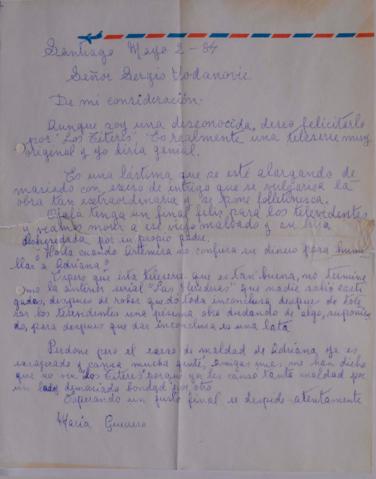 Santiago Mayo 2-84
Señor Sergio Vodanovic
De mi consideración.
Aunque soy una desconocida, deseo felicitarlo
por "Los Títeres". Es realmente una teleserie muy
original y yo diría genial.
Es una lástima que se esté alargando de
masiado con exceso de intriga que se vulgariza la
obra tan extraordinaria y se pone folletinesca.
Ojalá tenga un final feliz para los televidentes
y veamos morir a ese viejo malvado y su hija
desheredada por su propio padre.
¿Hasta cuando Artemisa no confiesa su dinero para humi
llar a Adriana?
Espero que esta teleserie que es tan buena, no termine
como la anterior serial "Las
que nadie
después de
toda inconclusa después de
los televidentes una persona
dudando de algo, suponien
do, para después que dar inconclusa es una lata.
Perdone pero el exceso de maldad de Adriana ya es
exagerado y cansa mucha gente, amigas mias me han dicho
que no ven "Los Títeres" porque ya les cansa tanta maldad por
un lado y demasiada bondad por otro
Esperando un justo final se despide atentamente
María Guerrero